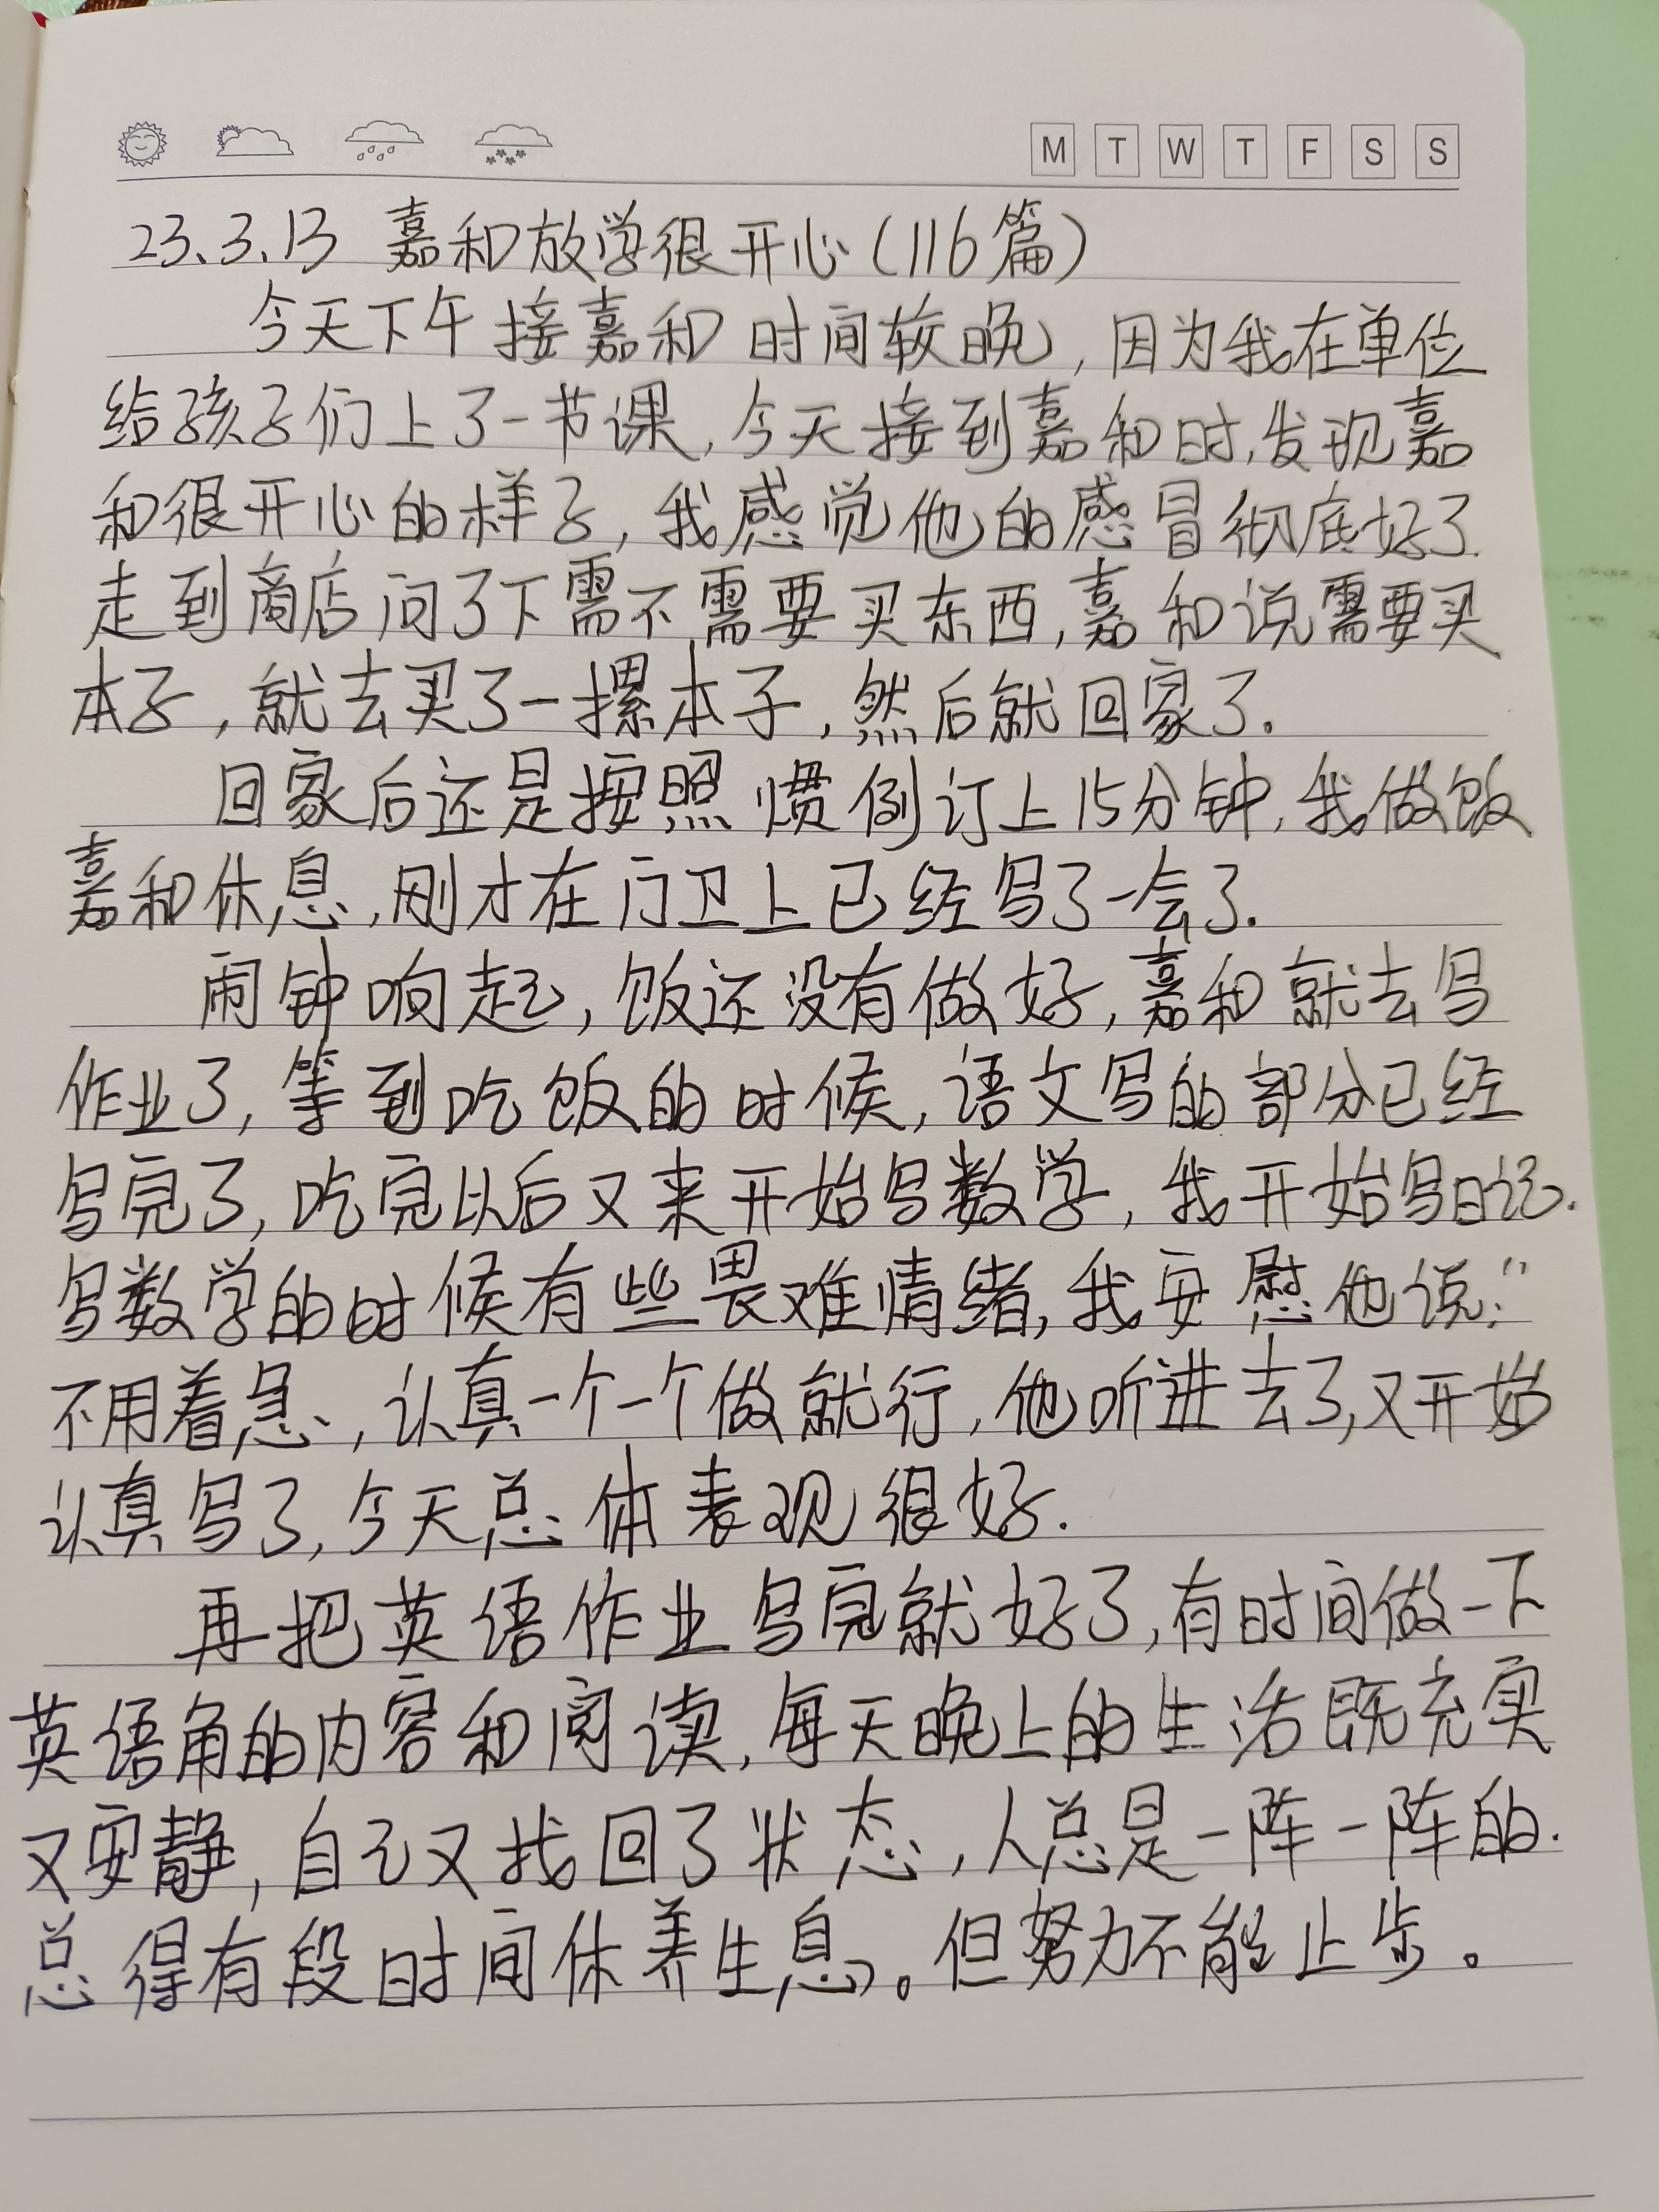 M T W T F S S
23.3.13 嘉和放学很开心(116篇)
今天下午接嘉和时间较晚,因为我在单位
给孩子们上了一节课,今天接到嘉和时,发现嘉
和很开心的样子,我感觉他的感冒彻底好了.
走到商店问了下需不需要买东西,嘉和说需要买
本子,就去买了一摞本子,然后就回家了.
回家后还是按照惯例订上15分钟,我做饭
嘉和休息,刚才在门卫上已经写了一会了.
闹钟响起,饭还没有做好,嘉和就去写
作业了,等到吃饭的时候,语文写的部分已经
写完了,吃完以后又来开始写数学,我开始写日记.
写数学的时候有些畏难情绪,我安慰他说:"
不用着急,认真一个一个做就行,他听进去了,又开始
认真写了,今天总体表现很好.
再把英语作业写完就好了,有时间做一下
英语角的内容和阅读,每天晚上的生活既充实
又安静,自己又找回了状态,人总是一阵一阵的.
总得有段时间休养生息。但努力不能止步。